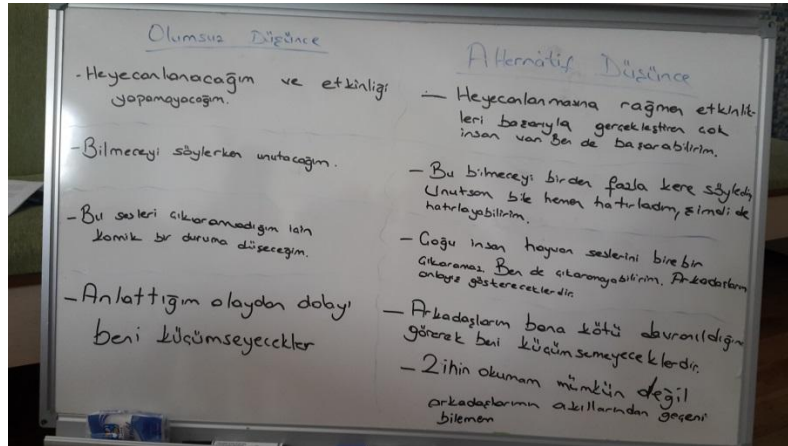 Olumsuz Düşünce
- Heyecanlanacağım ve etkinliği
yapamayacağım.
- Bilmeceyi söylerken unutacağım.
- Bu sesleri çıkaramadığım için
komik bir duruma düşeceğim.
- Anlattığım olaydan dolayı
beni küçümseyecekler
Alternatif Düşünce
- Heyecanlanmasına rağmen etkinlik-
leri başarıyla gerçekleştiren çok
insan var. Ben de başarabilirim.
- Bu bilmeceyi birden fazla kere söyledim,
Unutsam bile hemen hatırladım, şimdi de
hatırlayabilirim.
- Çoğu insan hayvan seslerini birebir
çıkaramaz. Ben de çıkaramayabilirim. Arkadaşlarım
anlayış göstereceklerdir.
- Arkadaşlarım bana kötü davranıldığını
görerek beni küçümsemeyeceklerdir.
- Zihin okumam mümkün değil
arkadaşlarımın akıllarından geçeni
bilemem